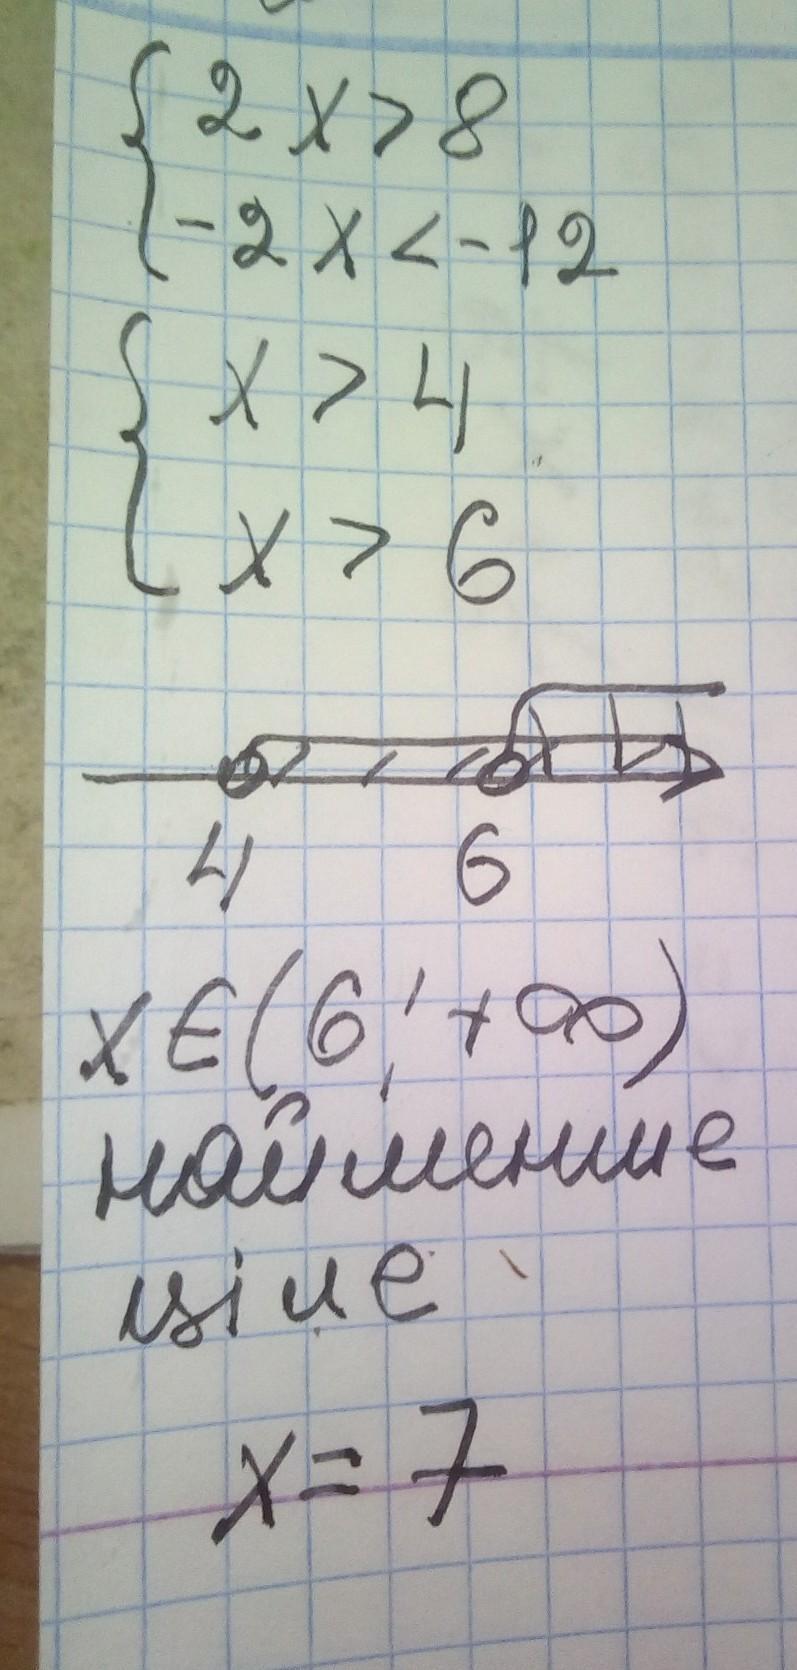 { 2x > 8
-2x < -12
{ x > 4
x > 6
4 6
x ∈ (6; +∞)
найменше
ціле
x = 7